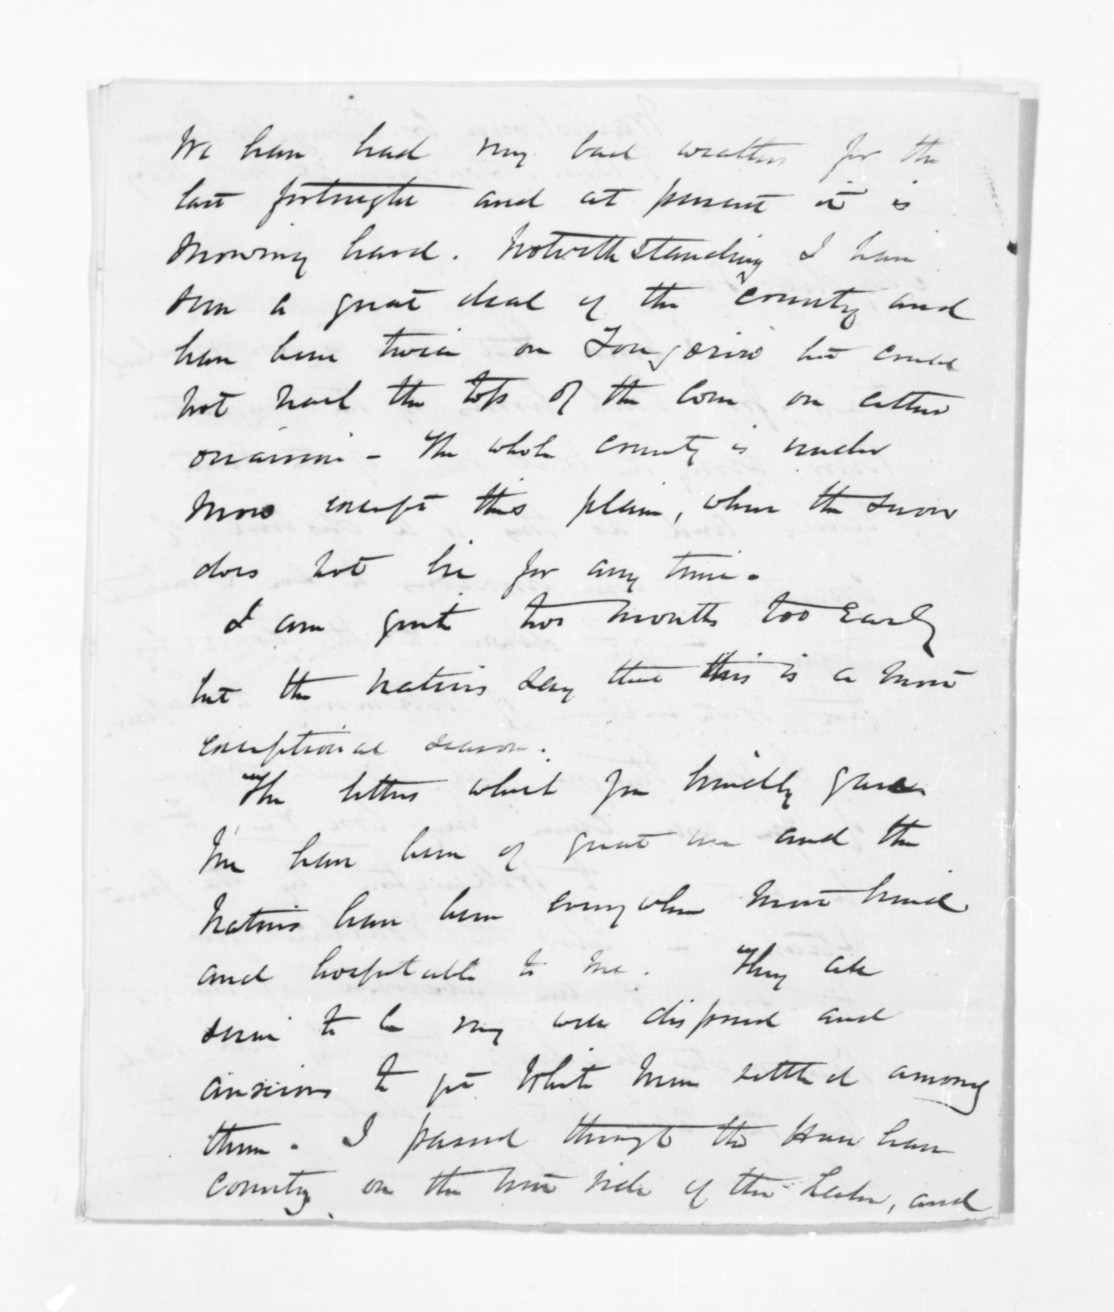 We have had very bad weather for the
last fortnight and at present it is
snowing hard. Notwithstanding I have
seen a great deal of the country and
have been twice on Tongariro but could
not reach the top of the Cone on either
occasion - The whole country is under
snow except this plain, where the snow
does not lie for any time.
I am quite two months too early
but the natives say that this is a most
exceptional season.
The letters which you kindly gave
me have been of great use and the
natives have been everywhere most kind
and hospitable to me. They all
seem to be very well disposed and
anxious to get White men settled among
them. I passed through the Hau hau
country on the west side of the Lake, and